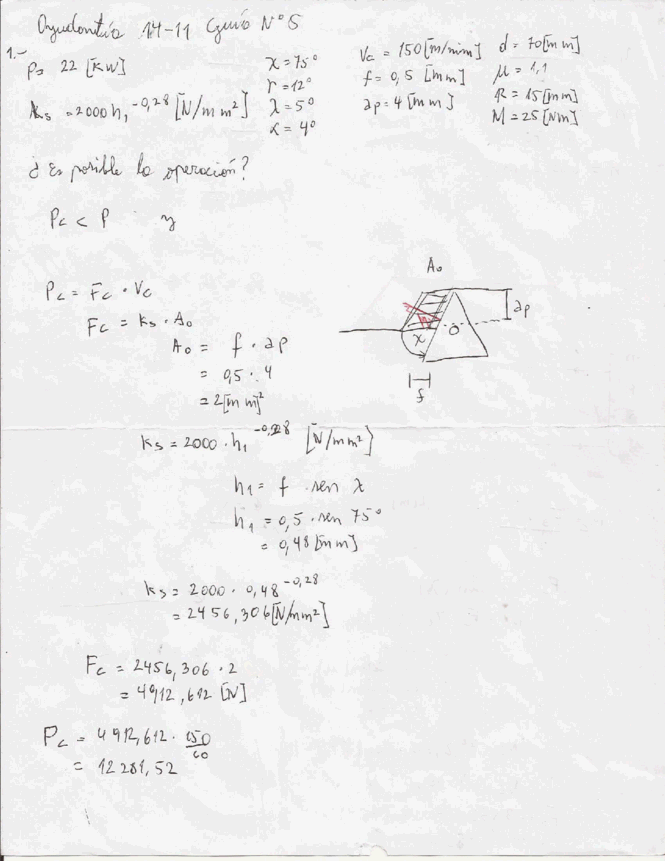 Ayudantía 14-11 Guía N°5
1.-
P= 22 [KW]
ks = 2000 h1^-0,28 [N/mm²]
χ = 75°
r = 12°
λ = 5°
α = 4°
Vc = 150 [m/mim]
f = 0,5 [mm]
ap = 4 [mm]
d = 70 [mm]
μ = 1,1
R = 15 [mm]
M = 25 [Nm]
¿ Es posible la operación?
Pc < P y
Pc = Fc · Vc
Fc = ks · Ao
Ao = f · ap
= 0,5 · 4
= 2 [mm]²
Ao
ap
χ
f
ks = 2000 · h1^-0,28 [N/mm²]
h1 = f · sen χ
h1 = 0,5 · sen 75°
= 0,48 [mm]
ks = 2000 · 0,48^-0,28
= 2456,306 [N/mm²]
Fc = 2456,306 · 2
= 4912,612 [N]
Pc = 4912,612 · 150/60
= 12281,52